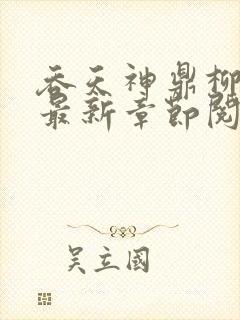 吞天神鼎柳
最新章节阅
吴立國